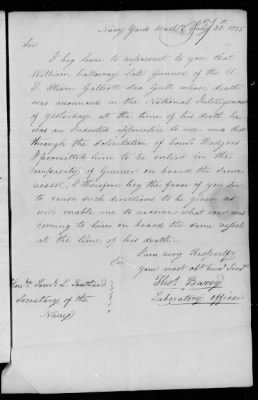 Navy Yard Wash
Sir
I beg leave to represent to you that
William Callaway late Gunner of the U.
S. Steam Galliott Sea Gull whose death
was anounced in the National Intelligencer
of yesterday at the time of his death he
was an Indented apprentice to me and that
through the solicitation of Comd. Rodgers
I permitted him to be enterd in the
compacity of Gunner on board the same
vessel, I therefore beg the favor of you Sir
to cause such directions to be given as
will enable me to receive what ever was
coming to him on board the same vessel
at the time of his death.
I am very Respectfy
Sir your most obt. Servt.
Thos. Barry
Laboratory officer
Honble. Saml. L. Southard
Secretary of the
Navy